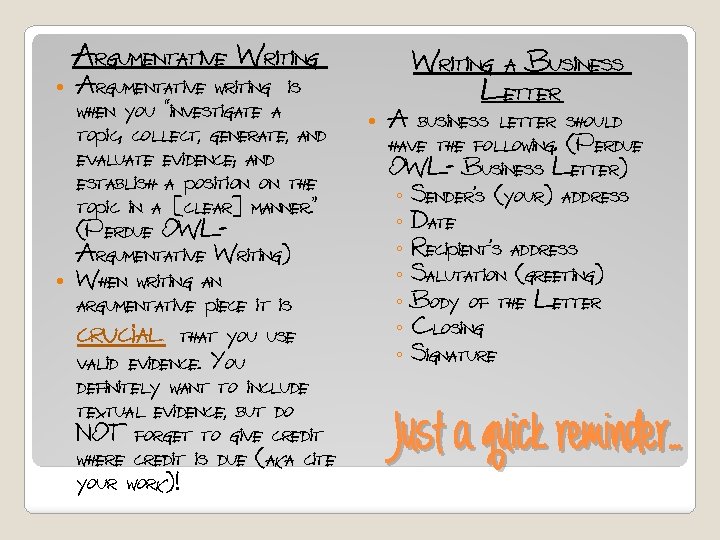 Argumentative Writing
• Argumentative writing is
when you “investigate a
topic; collect, generate, and
evaluate evidence; and
establish a position on the
topic in a [clear] manner.”
(Perdue OWL-
Argumentative Writing)
• When writing an
argumentative piece it is
CRUCIAL that you use
valid evidence. You
definitely want to include
textual evidence, but do
NOT forget to give credit
where credit is due (aka cite
your work)!
Writing a Business
Letter
• A business letter should
have the following. (Perdue
OWL- Business Letter)
◦ Sender’s (your) address
◦ Date
◦ Recipient’s address
◦ Salutation (greeting)
◦ Body of the Letter
◦ Closing
◦ Signature
Just a quick reminder...